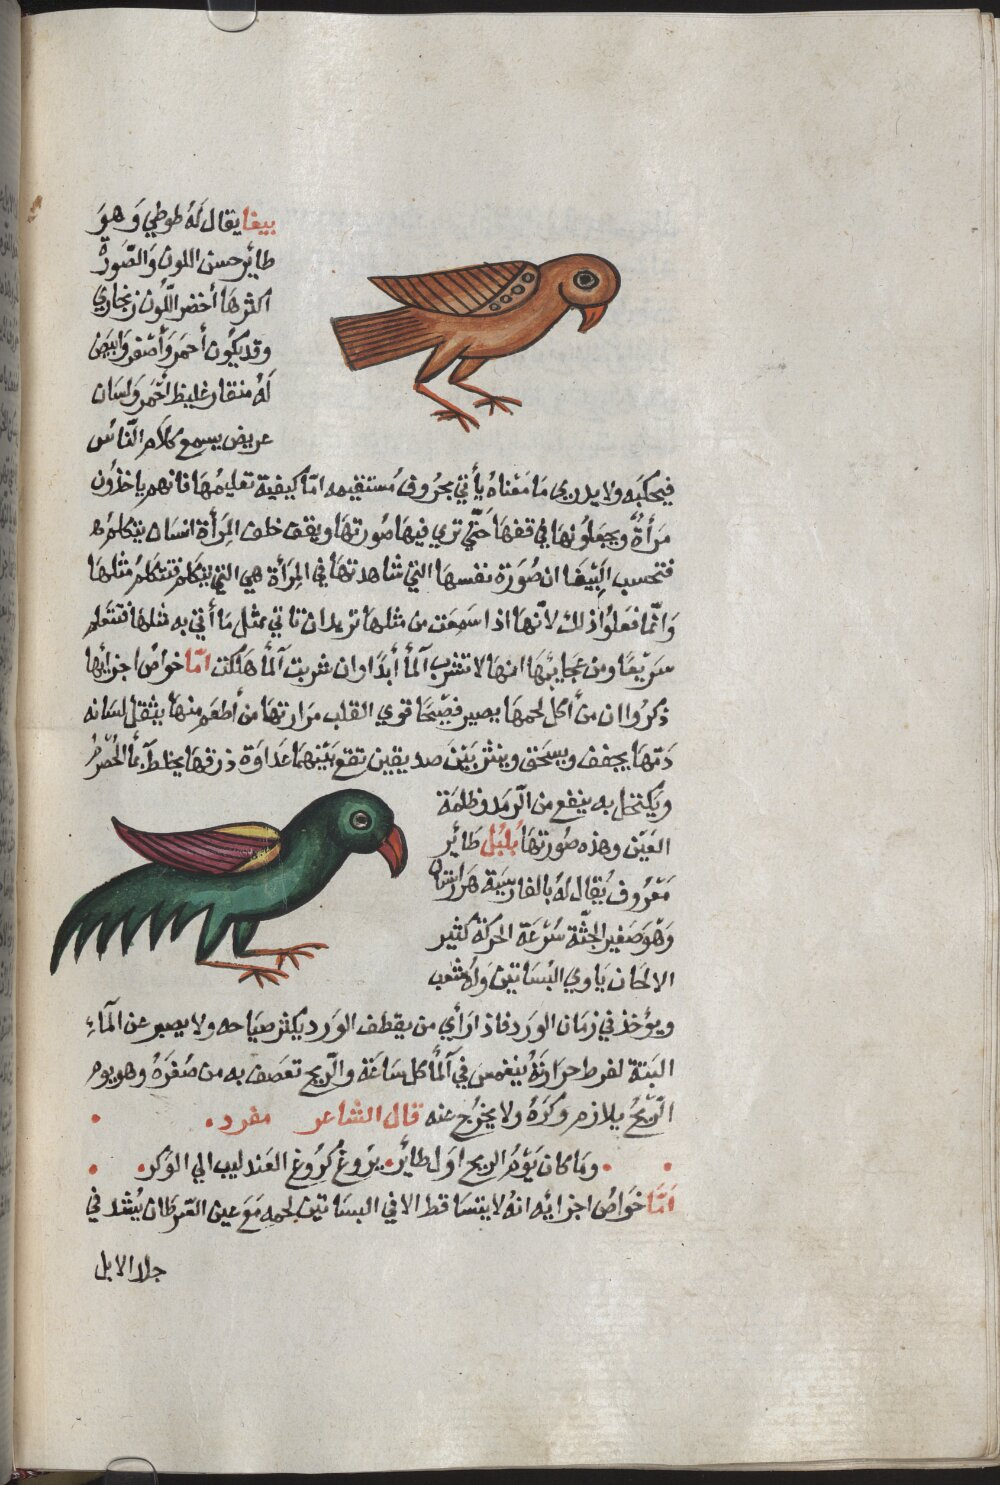 ببغا يقال لَهُ طوطي وَهوَ
طائر حسن اللون وَالصُّورَة
اكثرهَا أخضر اللَّون زنجاري
وقد يكُون أحمَر وَأصْفر وَابيَض
لَهُ منقار غليظ احْمَر وَلسَان
عريض يسمع كلاَم النَّاس
فيحكيَه ولا يدري مَا مَعْناهُ يأتي بحُروف مُستقيمه امّا كيفية تعليمُهَا فانهم ياخذُون
مَرَأةٌ ويجعَلُونهَا في قفصهَا حَتّي تري فيهَا صُورتهَا ويقف خلف المِرَأة انسان يتكلمُ
فتحسب البَبْغَا ان صُورَة نفسهَا التي شاهدتهَا في المِرَأة هي التي تتكلم فتتكلمُ مثلهَا
وَانّما فعَلُوا ذلك لاَنّهَا اذا سَمعَت من مثلهَا تريد ان تاتي بمثل مَا أتي به مثلهَا فتتعَلم
سَريْعًا ومن عَجَايبهَا انهَا لا تشرب آلمأ أبدًا وان شربت آلمأ هَلكت امّا خواصُ اجزايهَا
ذكرُوا ان من أكل لحمهَا يصير فصْيحًا قوي القلب مرَارتهَا من أطعَم منهَا يثقل لسَانه
دَمّهَا يجفف ويسحَق وينثر بَيْن صديقين تقع بَيْنهمَا عَداوَة ذرقهَا يخلط بمأ الحُصْرُم
ويَكتحَل به ينفع من الرّمَد وظلمة
العَيْن وهذه صُورَتهَا بُلبُل طَائر
مَعْرُوف يُقال لهُ بالفارسيَة هزَردَستان
وَهْوَ صَغير الجثّة سُرْعَة الحركَة كثير
الالحان يَاوي البسَاتين وَلهُ شغب
ويؤخذ في زمَان الورَد فاذ ارَأي من يقطف الورَد يكثر صيَاحه ولا يصبر عن المآء
البَتة لفرط حرَارَتهُ ينغمسَ في آلمأ كل سَاعَة والرّيح تعصَف به من صُغرهُ وهو يوم
الرّيحُ يلازم وكرَهُ ولا يخرُج عنه قال الشاعر مفرد
ومَا كان يَوْمُ الريح اوَل طائر يرُوغ كرُوغ العَندليب الي الوَكر
أمَّا خَوَاصُ اجزايه انهُ لا يتسَاقط الا في البسَاتين لحمه مَعَ عين السّرطَان يُشد في
جلد الابل